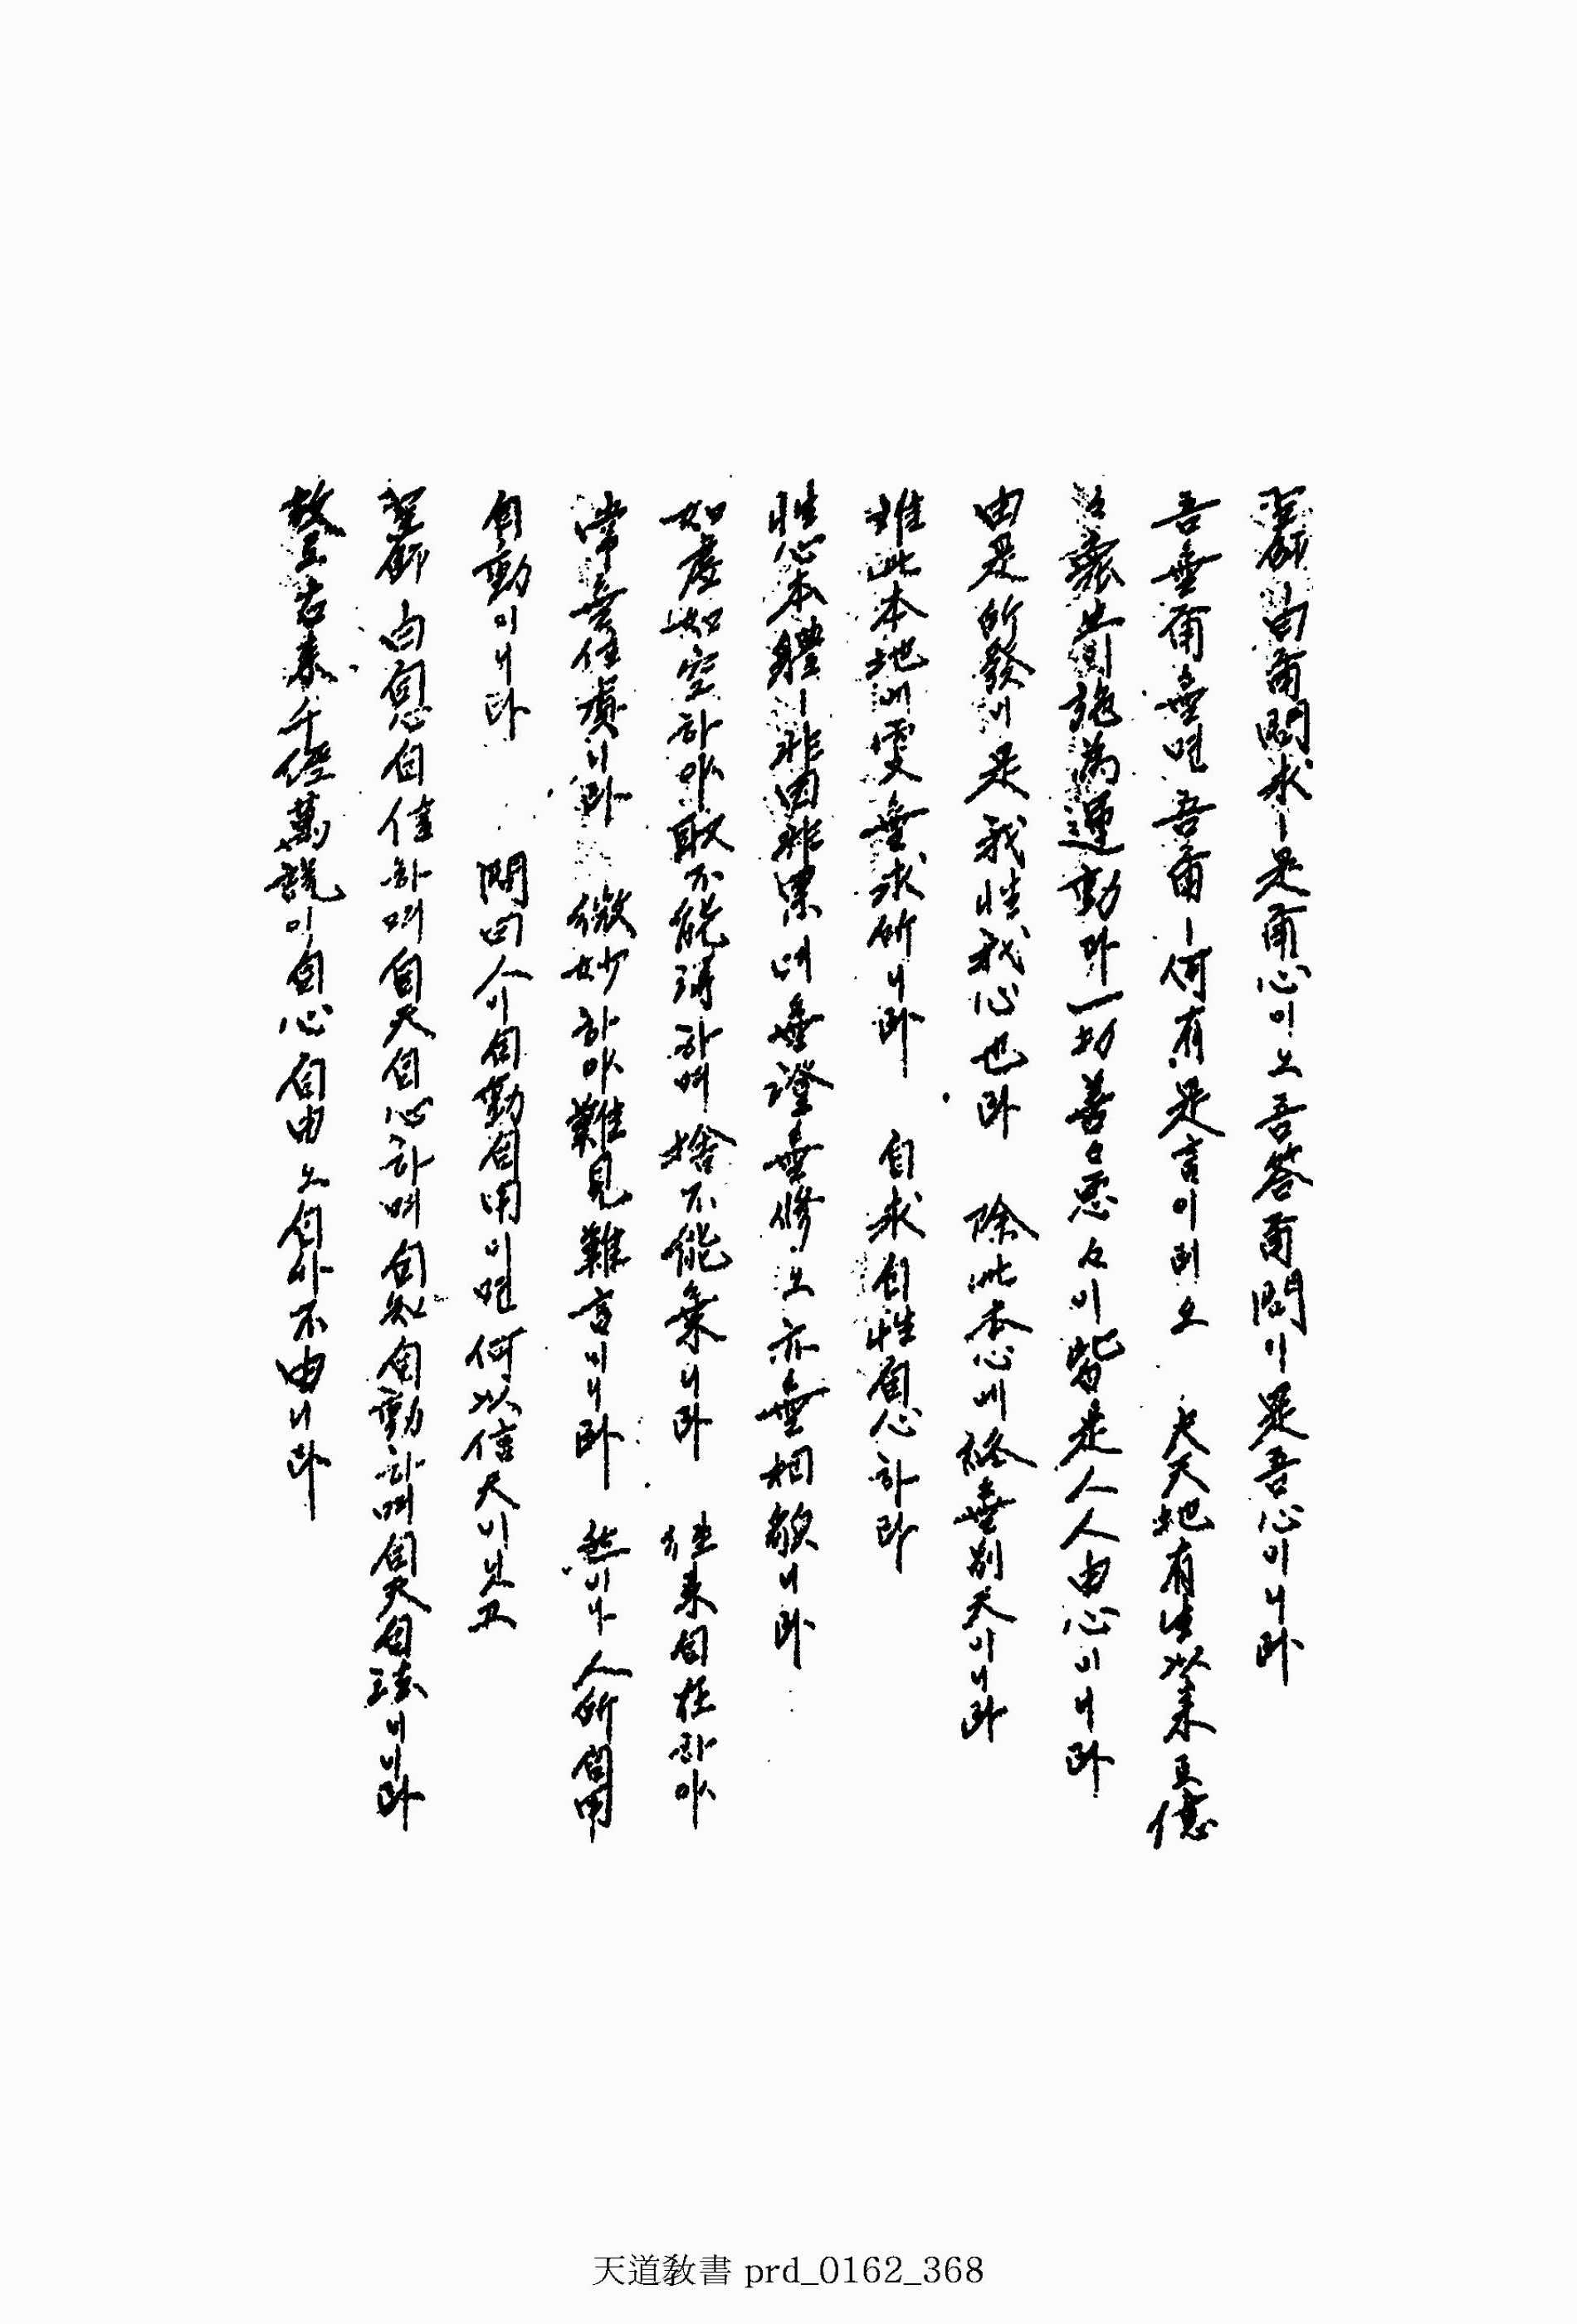 聖師曰爾問求ㅣ是爾心이오吾答爾問이是吾心이니라
吾無爾無면吾爾ㅣ何有是言이리오 夫天地有生以來로億
億衆生間施為運動과一切善善惡惡々이皆是人人由心이니라
由是所發이是我性我心也라 除此本心에終無別天이니라
離此本地에更無求所니라 自求自性自心하라
性心本體ㅣ非因非果며無證無修오亦無相貌니라
如虛如空하야取不能得하며捨不能棄니라 往來自在하야
常無住處니라 微妙하야難見難言이니라 然이나人所自用
自動이니라 問曰人이自動自用이면何以信天이닛고
聖師曰自心自信하며自天自心하며自知自動하며自天自法이니라
故로古來千經萬說이自心自由오自外不由니라
天道敎書 prd_0162_368